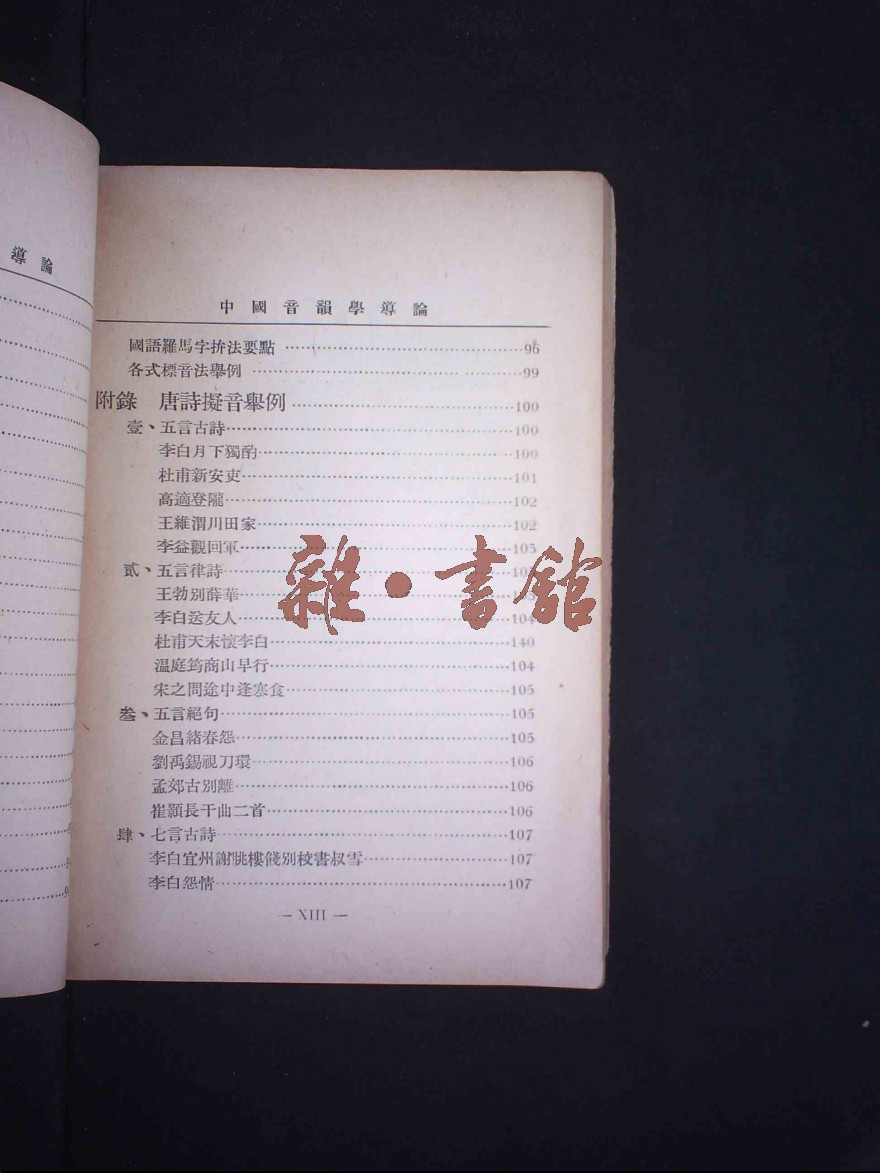 導論
中國音韻學導論
國語羅馬字拚法要點……96
各式標音法舉例……99
附錄 唐詩擬音舉例……100
壹、五言古詩……100
李白月下獨酌……100
杜甫新安吏……101
高適登隴……102
王維渭川田家……102
李益觀回軍……103
貳、五言律詩……
王勃別薛華……
李白送友人……104
杜甫天末懷李白……140
溫庭筠商山早行……104
宋之問途中逢寒食……105
叁、五言絕句……105
金昌緒春怨……105
劉禹錫視刀環……106
孟郊古別離……106
崔顥長干曲二首……106
肆、七言古詩……107
李白宜州謝朓樓餞別校書叔雪……107
李白怨情……107
— XIII —
雜·書館